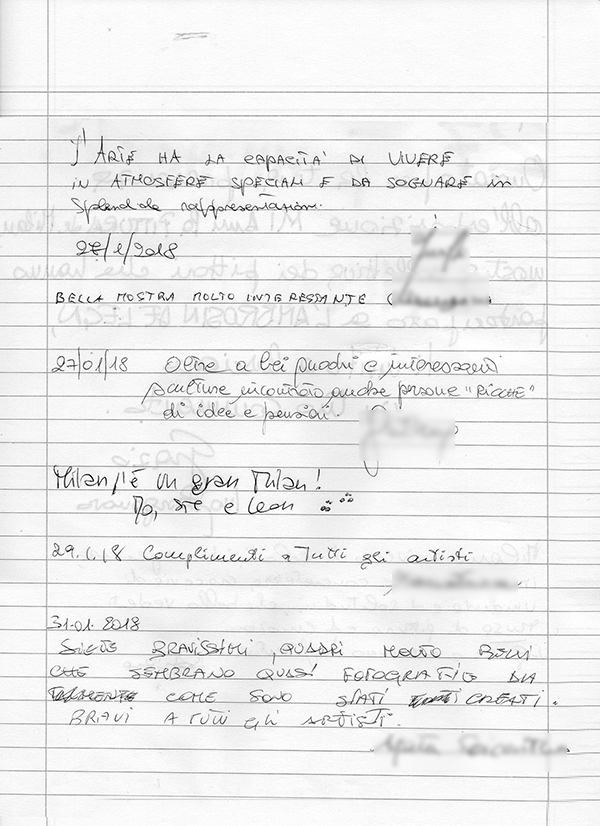 L'ARTE HA LA CAPACITA' DI VIVERE
in ATMOSFERE SPECIALI E DA SOGNARE in
splendide rappresentazioni.
27/1/2018
BELLA MOSTRA MOLTO INTERESSANTE
27/01/18 Oltre a bei quadri e interessanti
sculture incontrato anche persone "RICCHE"
di idee e pensieri.
Milan l'è un gran Milan!
e Leon
29.1.18 Complimenti a Tutti gli artisti
31.01.2018
SIETE BRAVISSIMI, QUADRI MOLTO BELLI
CHE SEMBRANO QUASI FOTOGRAFIE DA
COME SONO STATI CREATI.
BRAVI A TUTTI GLI ARTISTI.